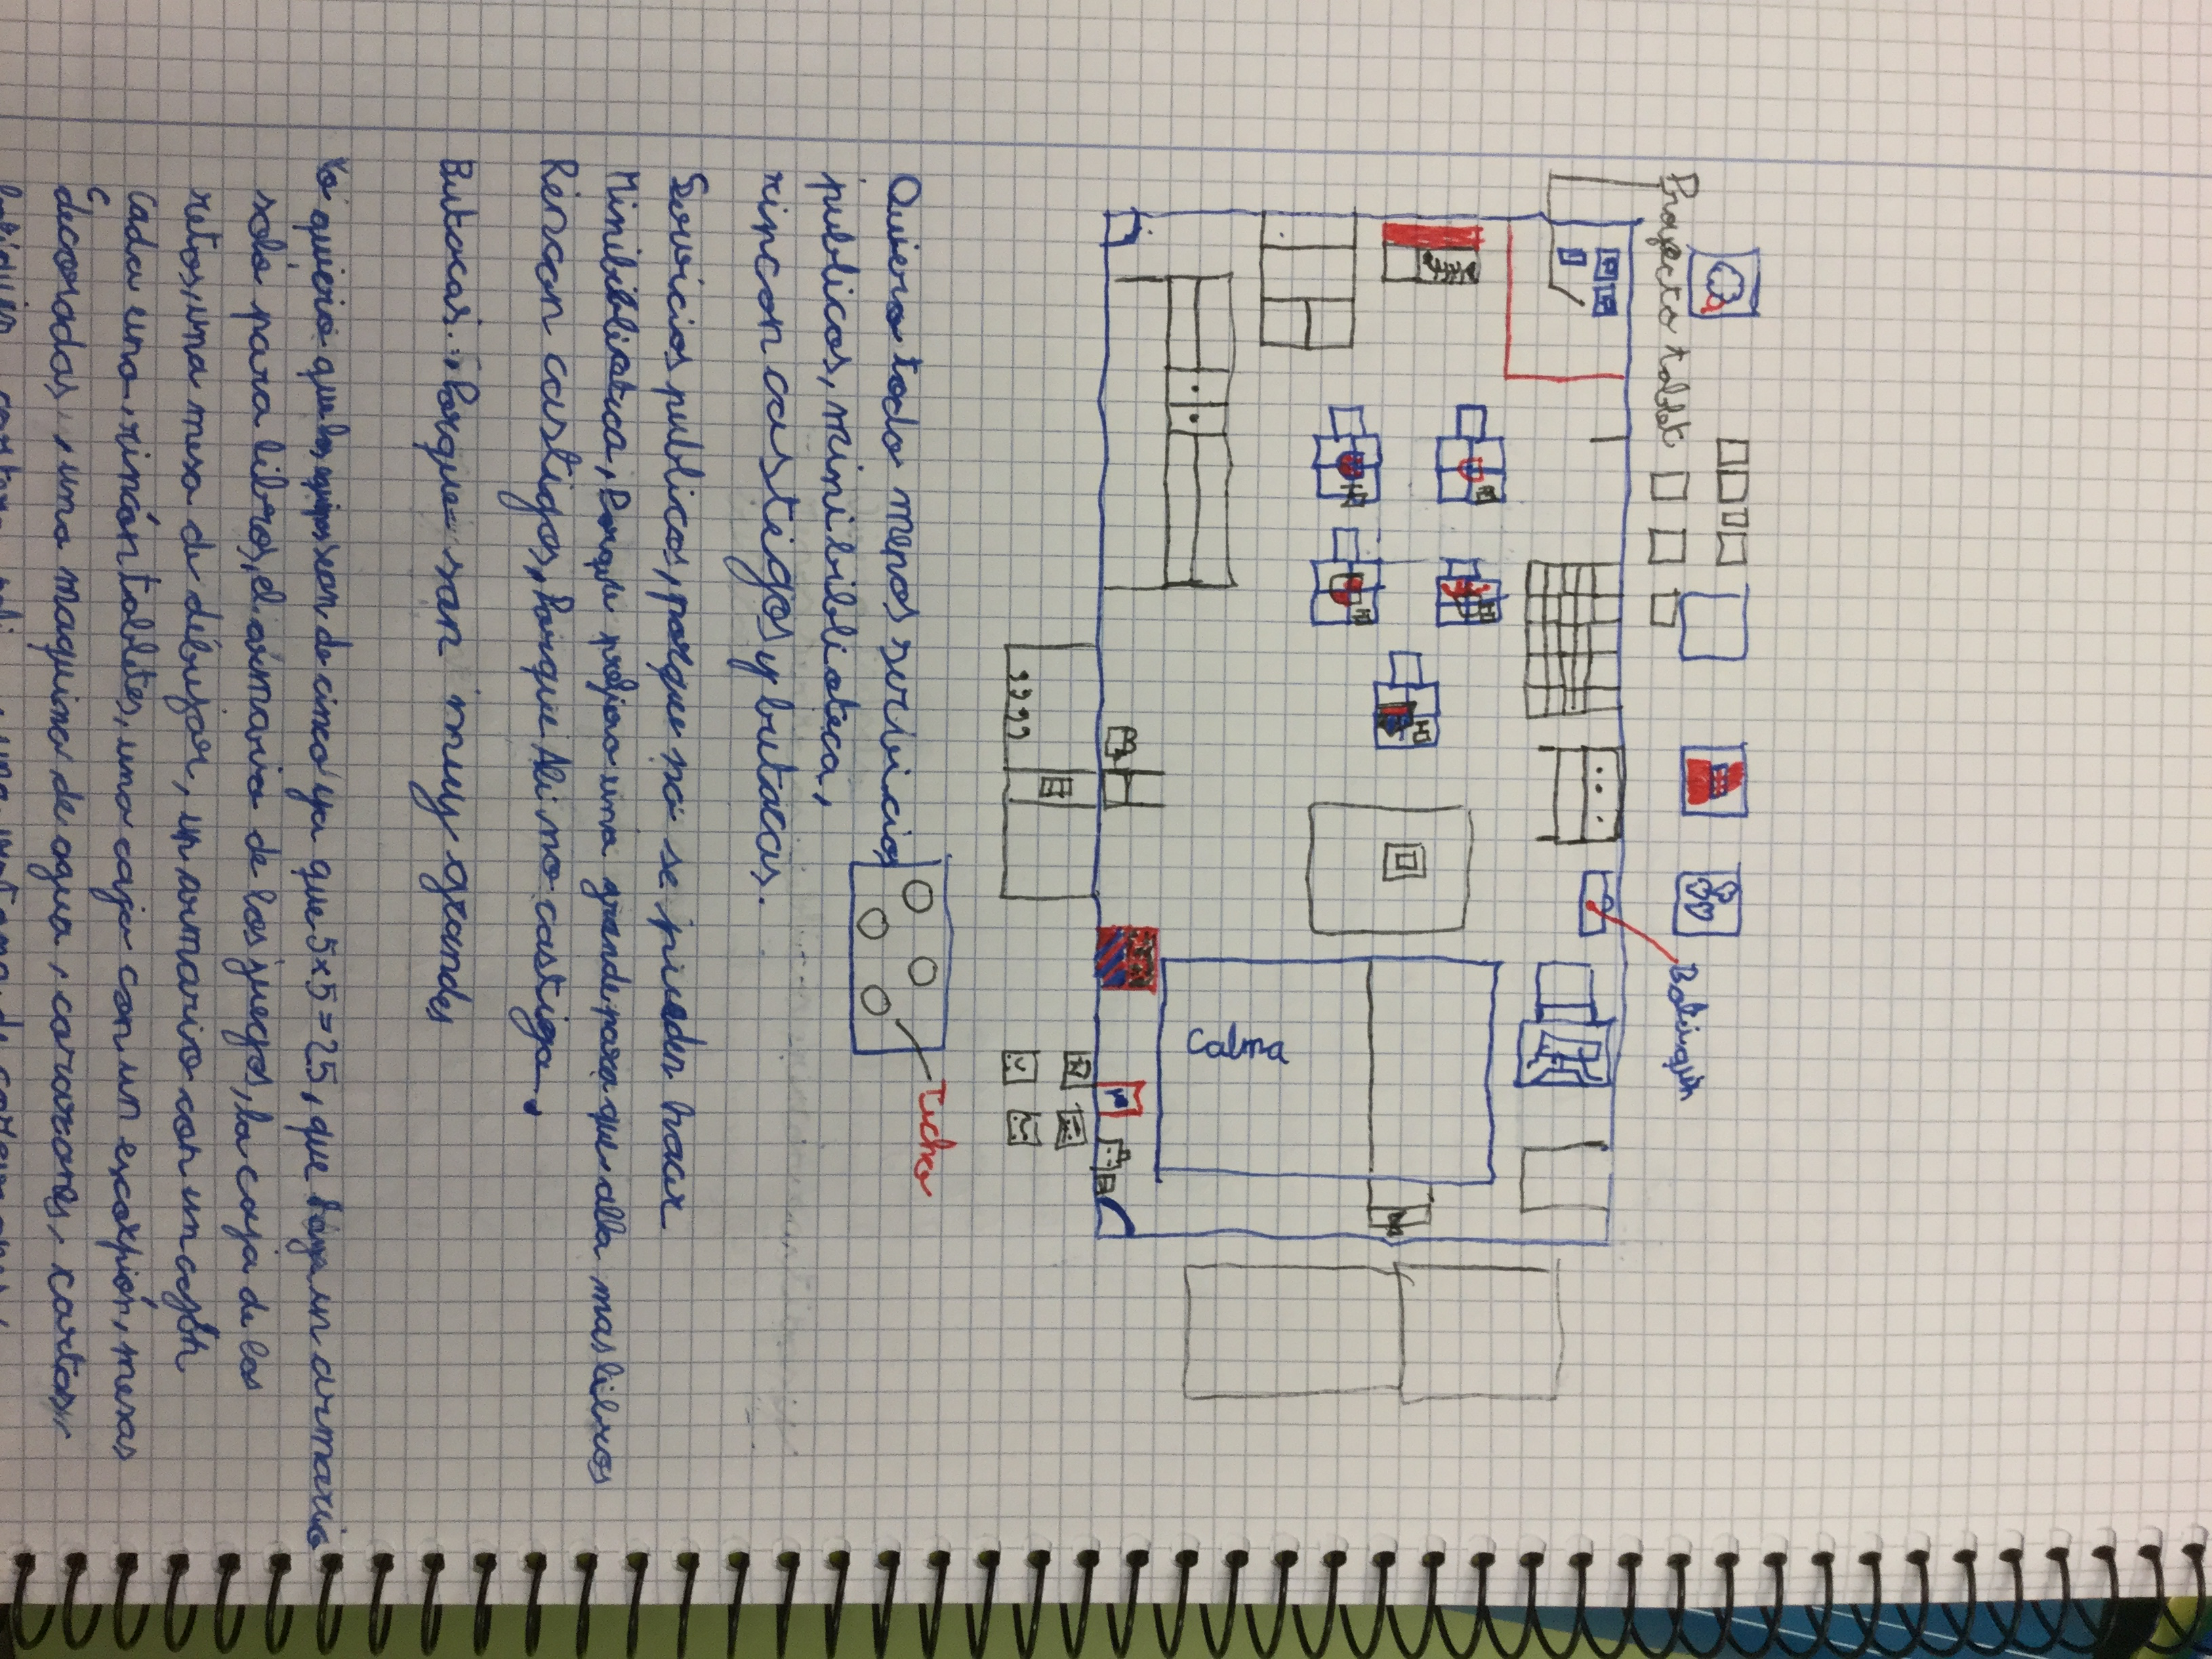 Proyecto tablet
Botiquín
Calma
Techo
Quiero todo menos servicios
publicos, minibiblioteca,
rincon castigos y butacas.
Servicios publicos, porque no se pueden hacer
Minibiblioteca, Porque prefiero una grande para que alla mas libros
Rincon castigos, Porque Ali no castiga.
Butacas: Porque son muy grandes
Yo quiero que los equipos son de cinco ya que 5x5=25, que haya un armario
solo para libros, el armario de los juegos, la caja de los
retos, una mesa de dibujar, un armario con un cajón
cada uno, rincón tablets, una caja con un escorpión, mesas
decoradas, una maquina de agua, corazones, cartas,